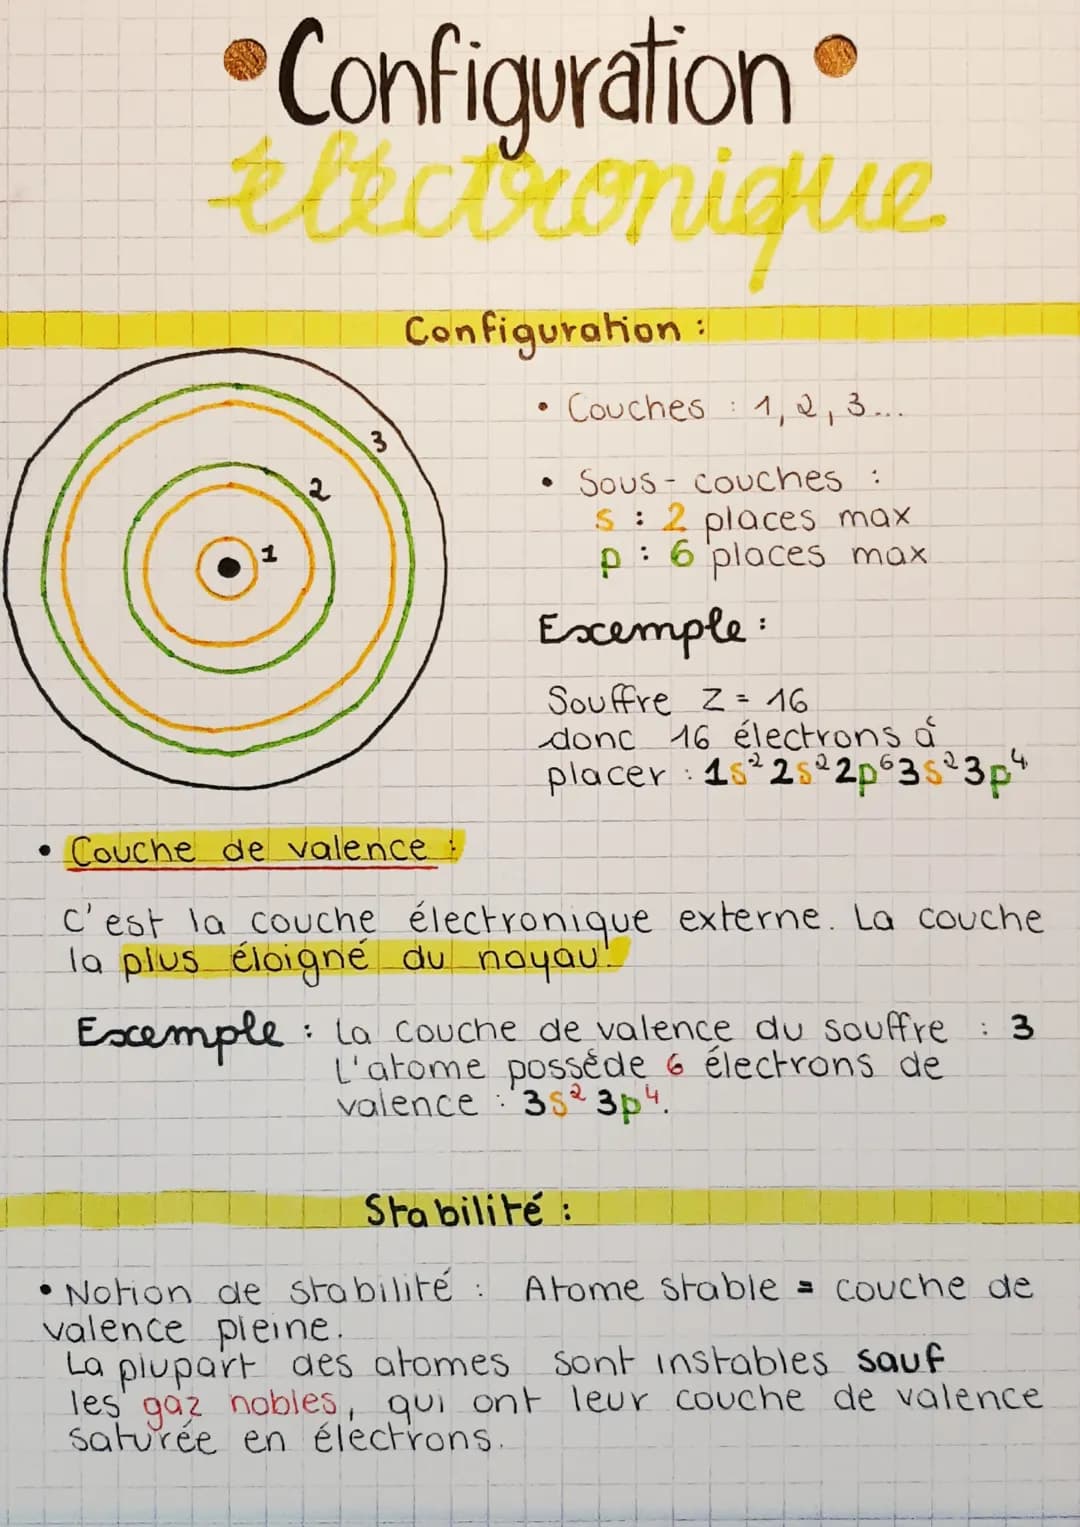 Configuration
électronique
Configuration :
• Couches : 1, 2, 3...
3
2
1
• Sous-couches :
s : 2 places max
p : 6 places max
Exemple :
Souffre Z = 16
donc 16 électrons à
placer : 1s² 2s² 2p⁶ 3s² 3p⁴
• Couche de valence :
C'est la couche électronique externe. La couche
la plus éloigné du noyau.
Exemple : la couche de valence du souffre : 3
L'atome possède 6 électrons de
valence : 3s² 3p⁴.
Stabilité :
• Notion de stabilité : Atome stable = couche de
valence pleine.
La plupart des atomes sont instables sauf
les gaz nobles, qui ont leur couche de valence
saturée en électrons.